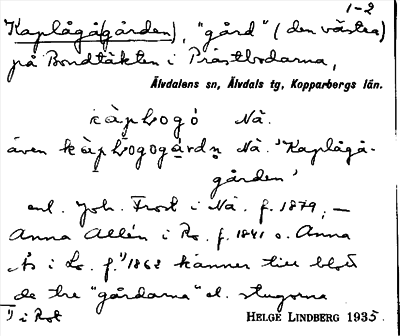 1-2
Kaplågå(gården), "gård" (den västra)
på Bondtäkten i Prästbodarna,
Älvdalens sn, Älvdals tg, Kopparbergs län.
kàplogó Nä.
även kàplogogárdn Nä. 'Kaplågå-
gården'
enl. Joh. Frost i Nä. f. 1879; —
Anna Allén i Ro. f. 1841 o. Anna
Ås i Lo. f.¹⁾ 1862 känner till blott
de tre "gårdarna" el. stugorna
¹⁾ i Rot
HELGE LINDBERG 1935.